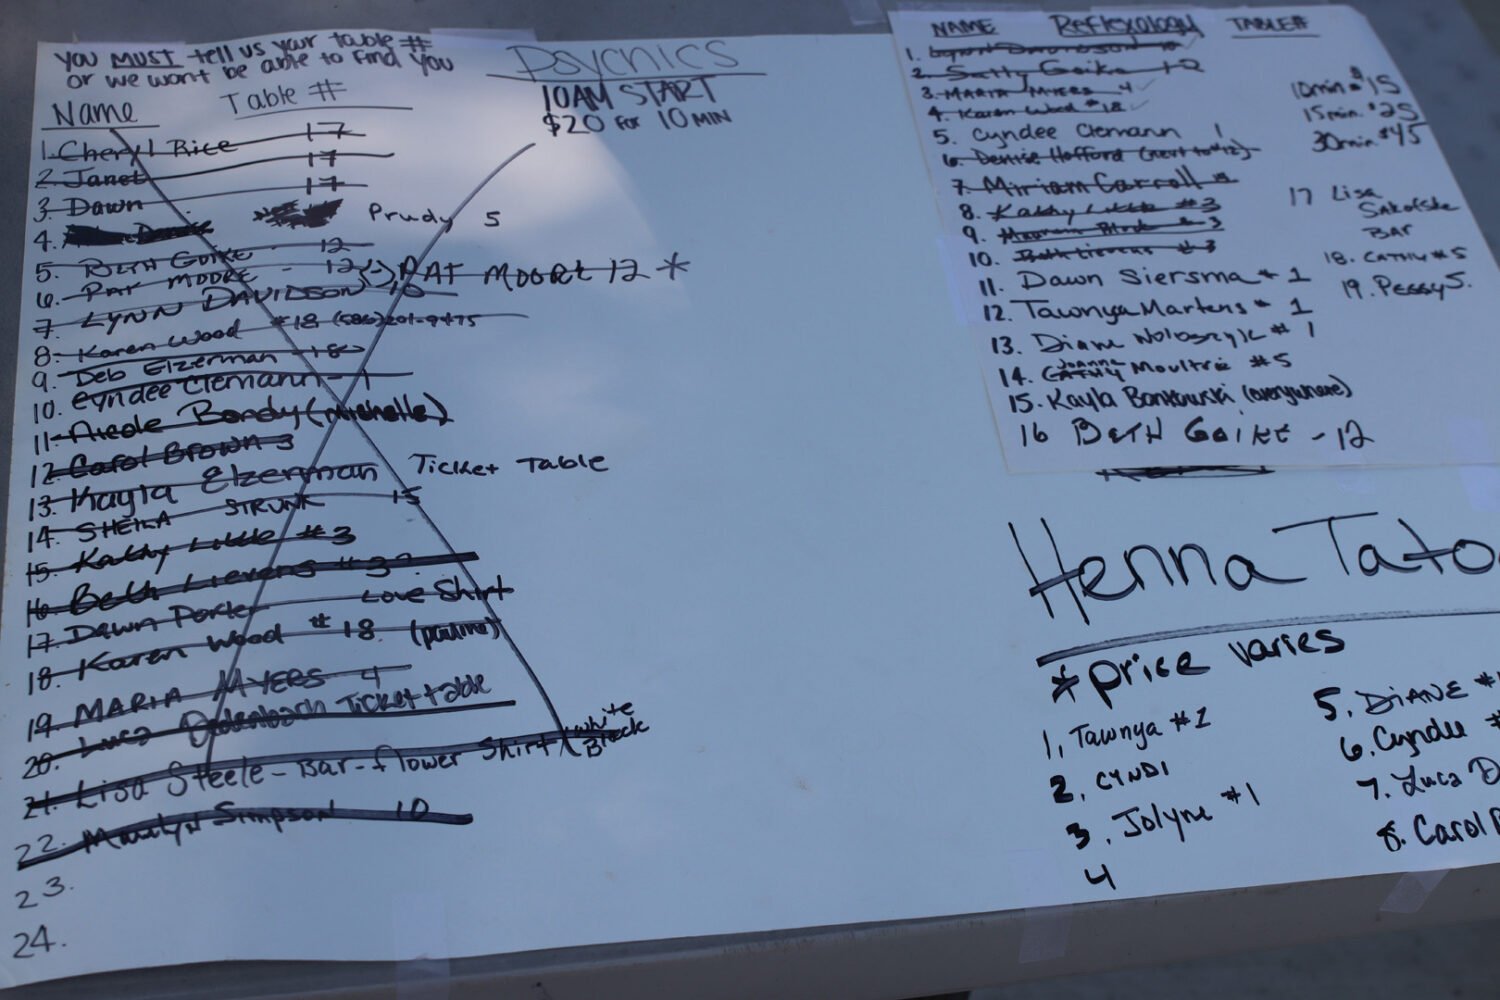 YOU MUST tell us your table #
or we wont be able to find you
Name Table #
1. Cheryl Rice 17
2. Janet 17
3. Dawn 17
4. Prudy 5
5. BETH GOIKE - 12
6. PAT MOORE - 12 PAT MOORE 12 *
7. LYNN DAVIDSON
8. Karen Wood #18 (586)201-9475
9. Deb Elzerman 18
10. Cyndee Clemann 1
11. Nicole Bondy (Michelle)
12. Carol Brown 3
13. Kayla Elzerman Ticket Table
14. SHEILA STRUNK 15
15. Kathy Little #3
16. Beth Lievens #3
17. Dawn Porter Love Shirt
18. Karen Wood #18
19. MARIA MYERS 4
20. Luca Ticket table
21. Lisa Steele - Bar - flower Shirt (white Black
22. Marilyn Simpson 10
23.
24.
PSYCHICS
10AM START
$20 for 10 MIN
NAME Reflexology TABLE#
1. Lynn Davidson
2. Betty Goike 12
3. MARIA MYERS 4
4. Karen Wood #18
5. Cyndee Clemann 1
6. Denise Hofford (next to #12)
7. Miriam Carroll
8. Kathy Little #3
9. Maureen Block #3
10. Beth Lievens #3
11. Dawn Siersma # 1
12. Tawnya Martens # 1
13. Diane # 1
14. JOANNE CATHY Moultrie #5
15. Kayla Bonkowski (everywhere)
16 BETH GOIKE - 12
10min $15
15min. $25
30min. $45
17 Lisa
BAR
18. CATHY #5
19. Peggy 5.
Henna Tato
* price varies
1, Tawnya #1
2, CYNDI
3, Jolyne #1
4
5, DIANE #
6. Cyndee #
7. Luca D
8. Carol B